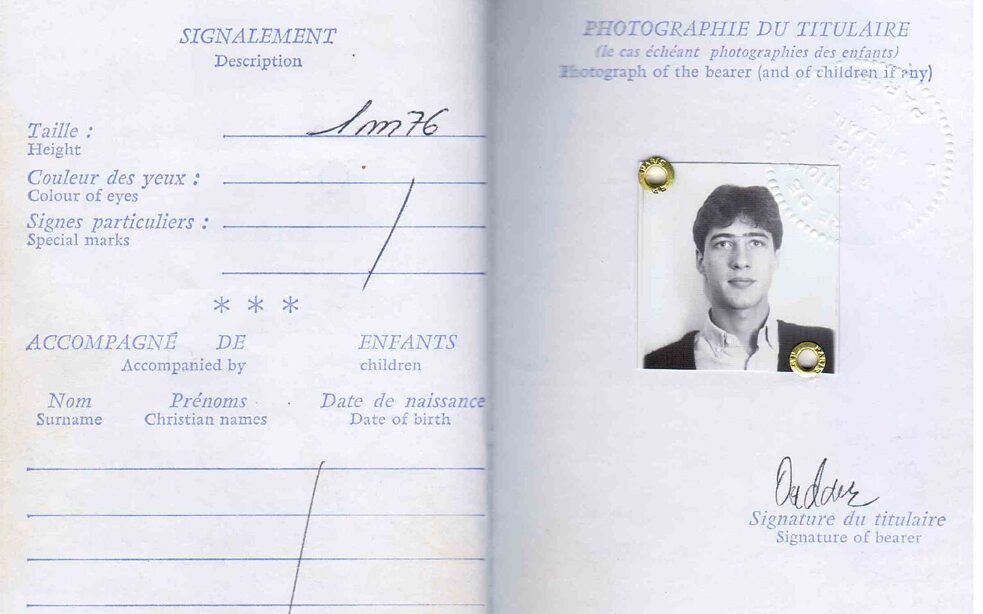 SIGNALEMENT
Description
Taille : 1m76
Height
Couleur des yeux :
Colour of eyes
Signes particuliers :
Special marks
* * *
ACCOMPAGNÉ DE ENFANTS
Accompanied by children
Nom Prénoms Date de naissance
Surname Christian names Date of birth
PHOTOGRAPHIE DU TITULAIRE
(le cas échéant photographies des enfants)
Photograph of the bearer (and of children if any)
Signature du titulaire
Signature of bearer